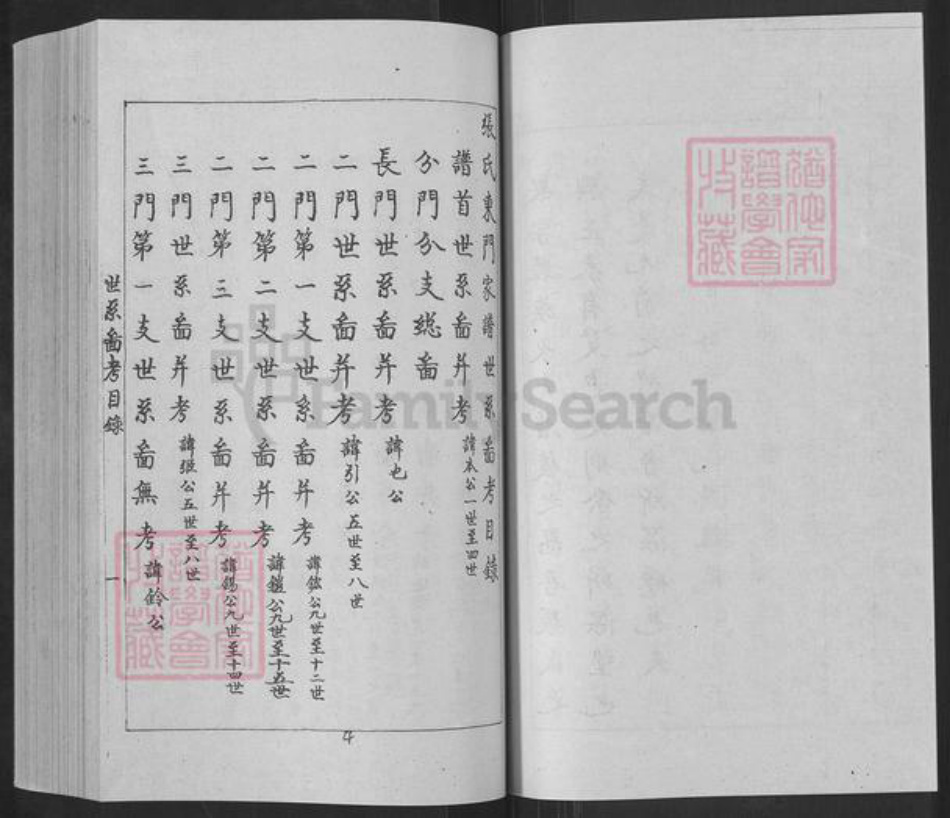 張氏東門家譜世系啚考目錄
譜首世系啚并考 諱本公一世至四世
分門分支總啚
長門世系啚并考 諱屯公
二門世系啚并考 諱引公五世至八世
二門第一支世系啚并考 諱鋐公九世至十二世
二門第二支世系啚并考 諱鎧公九世至十五世
二門第三支世系啚并考 諱錫公九世至十四世
三門世系啚并考 諱張公五世至八世
三門第一支世系啚無考 諱鈴公
世系啚考目錄
一
4
譜學會
收藏
譜學會
收藏
FamilySearch